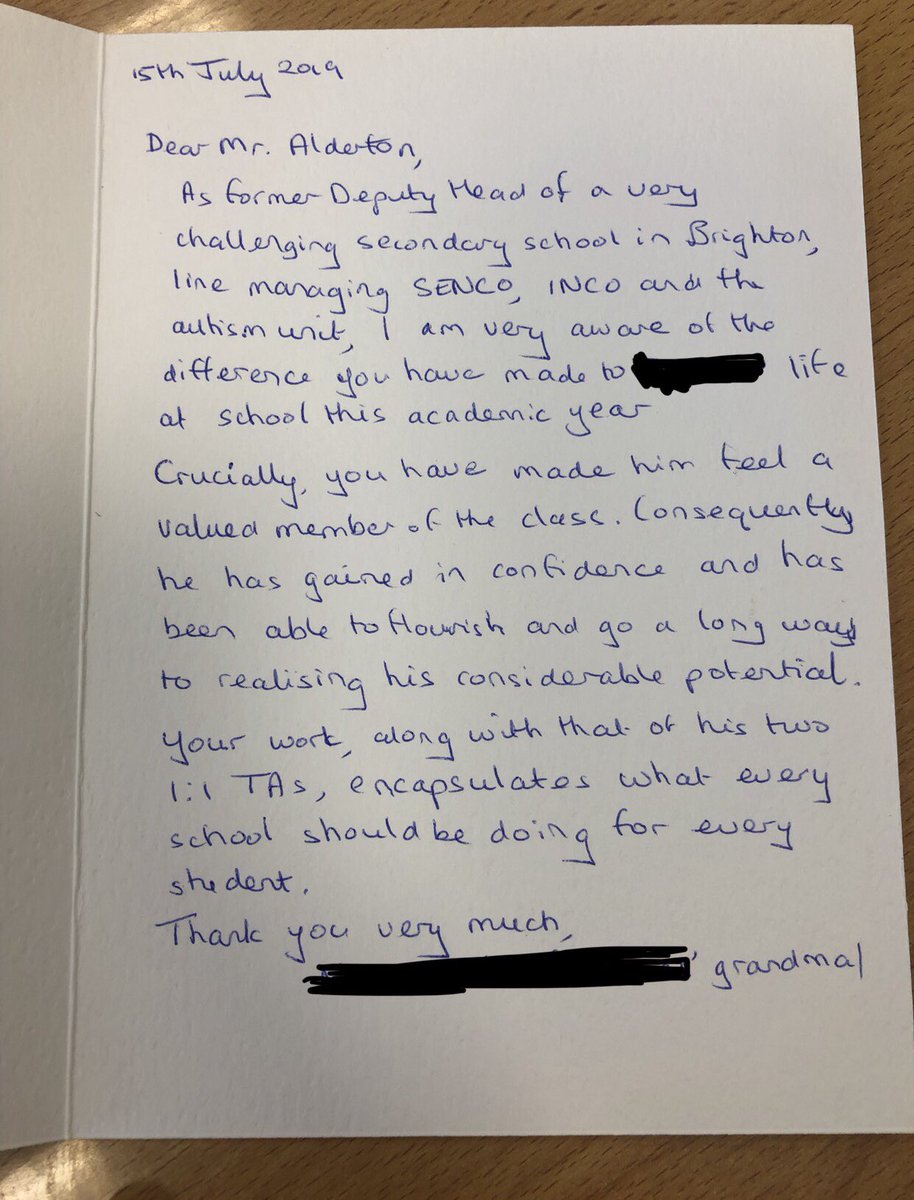 15th July 2019
Dear Mr. Alderton,
As former Deputy Head of a very
challenging secondary school in Brighton,
line managing SENCO, INCO and the
autism unit, I am very aware of the
difference you have made to life
at school this academic year
Crucially, you have made him feel a
valued member of the class. Consequently
he has gained in confidence and has
been able to flourish and go a long way
to realising his considerable potential.
Your work, along with that of his two
1:1 TAs, encapsulates what every
school should be doing for every
student.
Thank you very much,
' grandma)